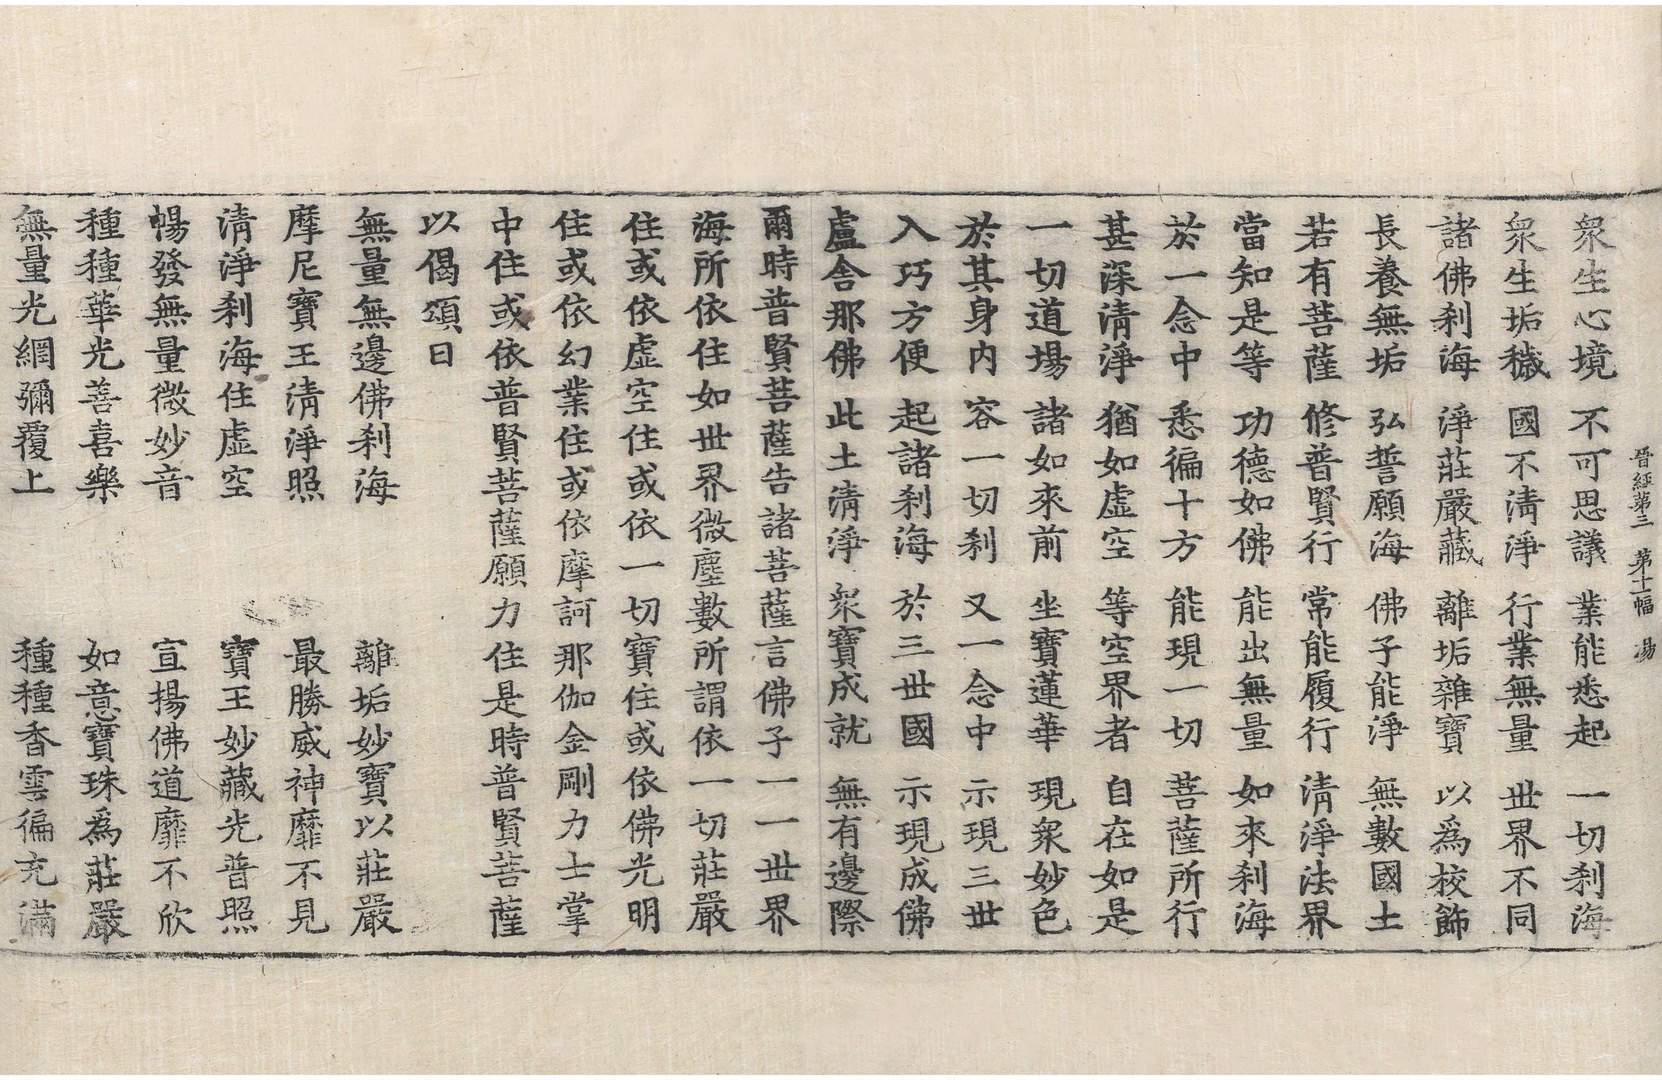 晉經第三　第十二幅　湯
眾生心境　不可思議　業能悉起　一切刹海
眾生垢穢　國不清淨　行業無量　世界不同
諸佛刹海　淨莊嚴藏　離垢雜寶　以爲校飾
長養無垢　弘誓願海　佛子能淨　無數國土
若有菩薩　修普賢行　常能履行　清淨法界
當知是等　功德如佛　能出無量　如來刹海
於一念中　悉徧十方　能現一切　菩薩所行
甚深清淨　猶如虛空　等空界者　自在如是
一切道場　諸如來前　坐寶蓮華　現眾妙色
於其身內　容一切刹　又一念中　示現三世
入巧方便　起諸刹海　於三世國　示現成佛
盧舍那佛　此土清淨　眾寶成就　無有邊際
爾時普賢菩薩告諸菩薩言佛子一一世界
海所依住如世界微塵數所謂依一切莊嚴
住或依虛空住或依一切寶住或依佛光明
住或依幻業住或依摩訶那伽金剛力士掌
中住或依普賢菩薩願力住是時普賢菩薩
以偈頌曰
無量無邊佛刹海　離垢妙寶以莊嚴
摩尼寶王清淨照　最勝威神靡不見
清淨刹海住虛空　寶王妙藏光普照
暢發無量微妙音　宣揚佛道靡不欣
種種華光善喜樂　如意寶珠爲莊嚴
無量光網彌覆上　種種香雲徧充滿